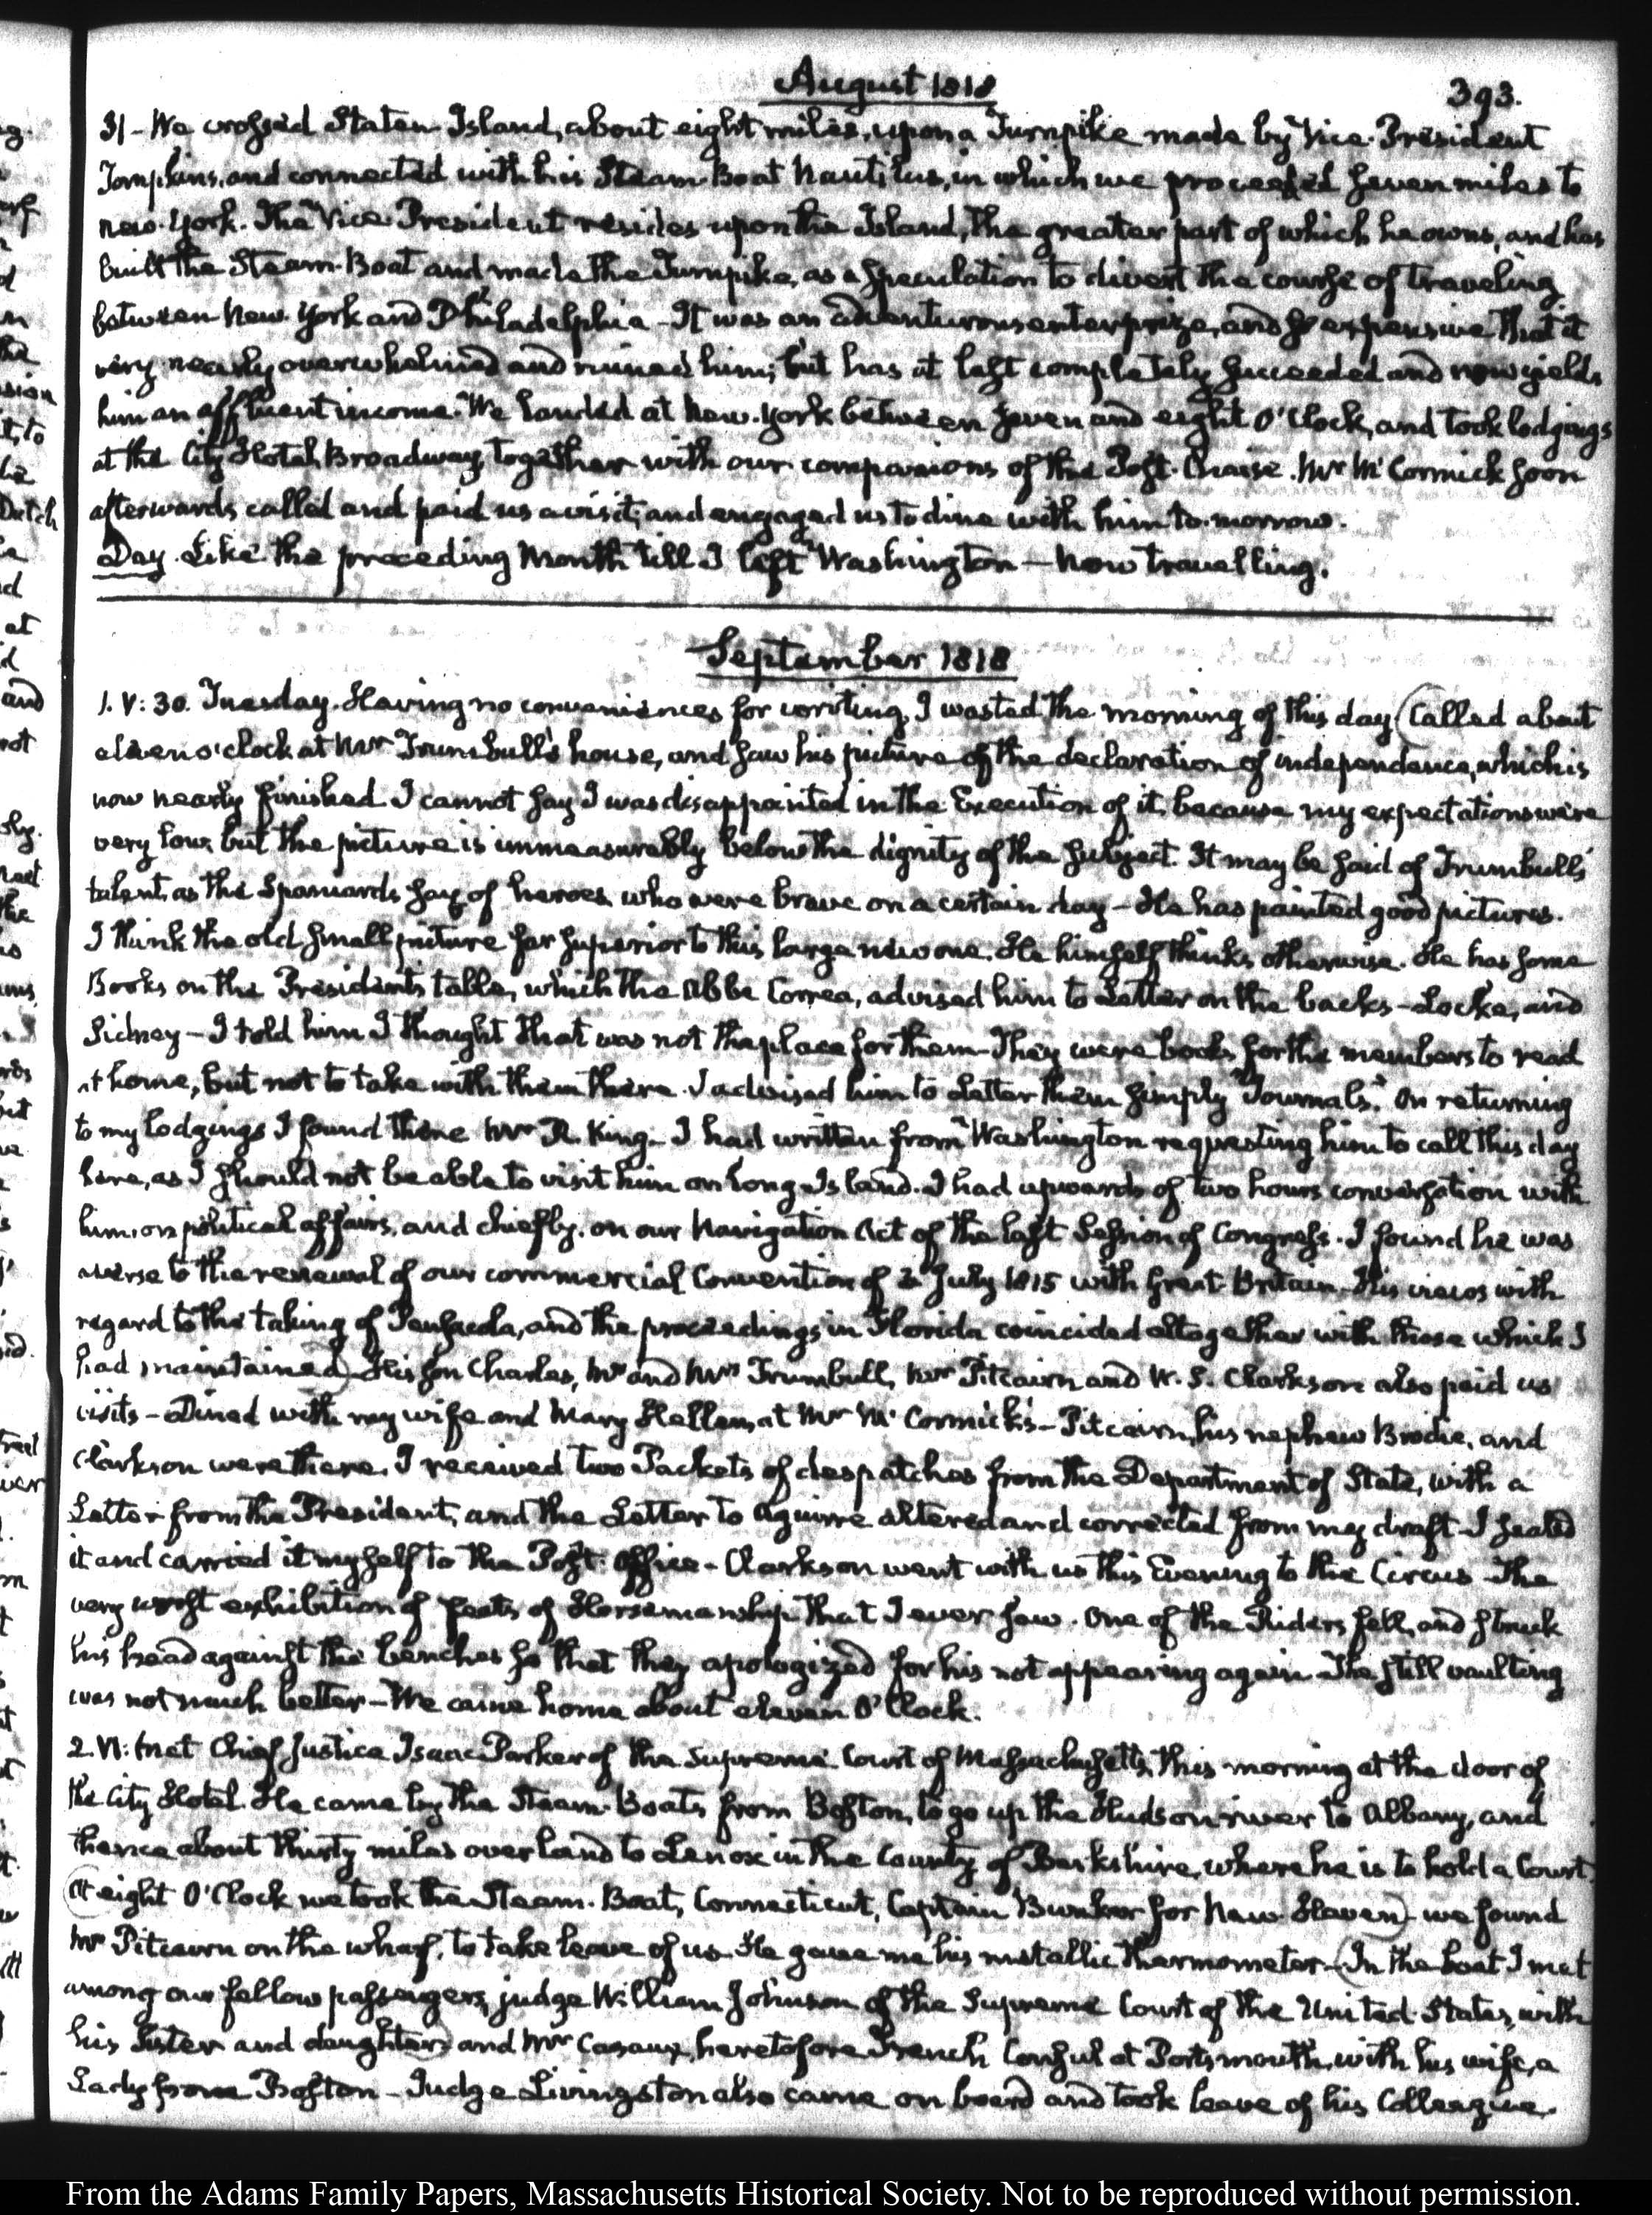 August 1818
393.
31 - We crossed Staten Island, about eight miles, upon a Turnpike made by Vice-President
Tompkins, and connected with his Steam-Boat Nautilus, in which we proceeded seven miles to
New-York. The Vice-President resides upon the Island, the greater part of which he owns, and has
built the Steam-Boat and made the Turnpike, as a speculation to divert the course of traveling
between New-York and Philadelphia - It was an adventurous enterprize, and so expensive that it
very nearly overwhelmed and ruined him; but has at last completely succeeded and now yields
him an affluent income. We landed at New-York between seven and eight O'Clock, and took lodgings
at the City Hotel, Broadway, together with our companions of the Post-Chaise. Mr McCormick soon
afterwards called and paid us a visit; and engaged us to dine with him to-morrow.
Day. Like the preceding Month till I left Washington - Now travelling.
September 1818
1. V: 30. Tuesday. Having no conveniences for writing, I wasted the morning of this day (Called about
eleven o'clock at Mr Trumbull's house, and saw his picture of the declaration of independence, which is
now nearly finished. I cannot say I was disappointed in the Execution of it, because my expectations were
very low; but the picture is immeasurably below the dignity of the subject. It may be said of Trumbull's
talent, as the Spaniards say of heroes who were brave on a certain day - He has painted good pictures.
I think the old small picture far superior to this large new one. He himself thinks otherwise. He has some
Books on the President's table, which the Abbé Correa, advised him to Letter on the backs - Locke, and
Sidney - I told him I thought that was not the place for them - They were books for the members to read
at home, but not to take with them there. I advised him to Letter them simply "Journals." On returning
to my lodgings I found there Mr R. King - I had written from Washington requesting him to call this day
here, as I should not be able to visit him on Long Island. I had upwards of two hours conversation with
him, on political affairs, and chiefly on our Navigation Act of the last Session of Congress. I found he was
averse to the renewal of our commercial Convention of 3 July 1815 with Great-Britain. His views with
regard to the taking of Pensacola, and the proceedings in Florida coincided altogether with those which I
had maintained) His son Charles, Mr and Mrs Trumbull, Mr Pitcairn and W. S. Clarkson also paid us
visits - Dined with my wife and Mary Hellen, at Mr McCormick's - Pitcairn, his nephew Brodie, and
Clarkson were there. I received two Packets of despatches from the Department of State, with a
Letter from the President, and the Letter to Aguirre altered and corrected from my draft - I sealed
it and carried it myself to the Post-Office - Clarkson went with us this Evening to the Circus - The
very worst exhibition of feats of Horsemanship that I ever saw. One of the Riders fell, and struck
his head against the benches so that they apologized for his not appearing again - The still vaulting
was not much better - We came home about eleven O'Clock.
2. VI: Met Chief Justice Isaac Parker of the Supreme Court of Massachusetts, this morning at the door of
the City Hotel. He came by the Steam-Boats from Boston, to go up the Hudson river to Albany, and
thence about thirty miles over land to Lenox in the County of Berkshire, where he is to hold a Court.
(At eight O'Clock we took the Steam-Boat, Connecticut, Captain Bunker for New-Haven) - we found
Mr Pitcairn on the wharf, to take leave of us. He gave me his metallic thermometer - (In the boat I met
among our fellow passengers, judge William Johnson of the Supreme Court of the United States, with
his Sister and daughter) and Mr Cazaux, heretofore French Consul at Portsmouth, with his wife, a
Lady from Boston - Judge Livingston also came on board and took leave of his Colleague.
From the Adams Family Papers, Massachusetts Historical Society. Not to be reproduced without permission.